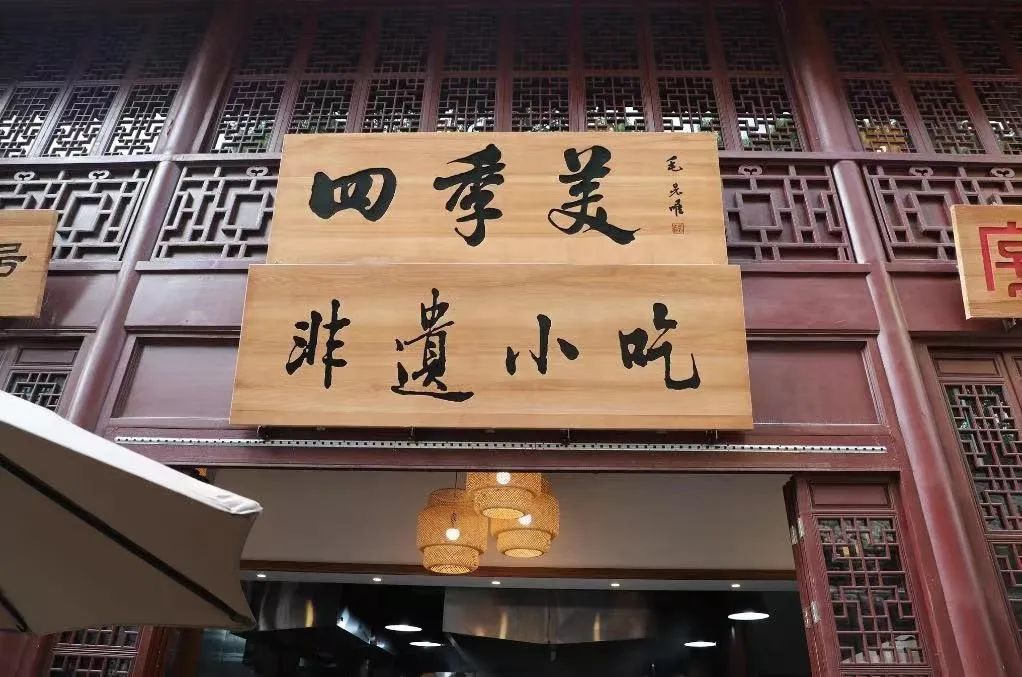 四季美
毛光唯
非遗小吃
号